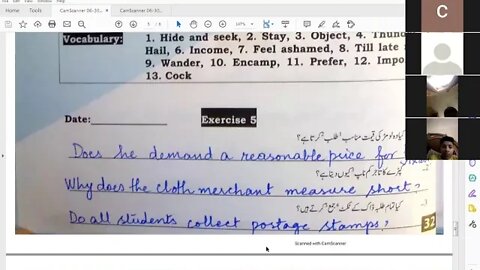 CamScanner 06-30...
CamScanner 06-30...
Vocabulary:
1. Hide and seek, 2. Stay, 3. Object, 4. Thund
Hail, 6. Income, 7. Feel ashamed, 8. Till late
9. Wander, 10. Encamp, 11. Prefer, 12. Impo
13. Cock
Date:
Exercise 5
کیا وہ لومڑ کی قیمت مناسب طلب کرتا ہے؟
Does he demand a reasonable price for
کپڑے کا تاجر کم ماپ کیوں دیتا ہے؟
Why does the cloth merchant measure short?
کیا تمام طلبہ ڈاک کے ٹکٹ جمع کرتے ہیں؟
Do all students collect postage stamps?
32
Scanned with CamScanner
C